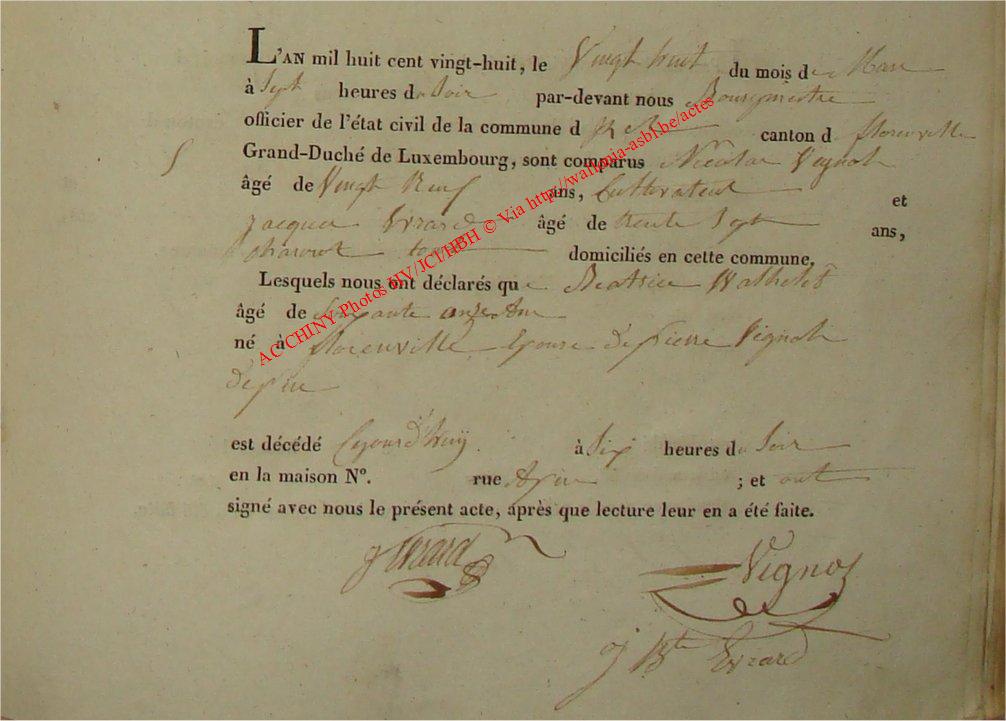 L'AN mil huit cent vingt-huit, le Vingt huit du mois de Mars
à Sept heures du Soir par-devant nous Bourgmestre
officier de l'état civil de la commune d canton d florenville
Grand-Duché de Luxembourg, sont comparus Nicolas Vignol
âgé de Vingt Neuf ans, Cultivateur et
Jacques Evrard âgé de trente Sept ans,
domiciliés en cette commune.
Lesquels nous ont déclarés que Beatrice Wathelet
âgé de Soixante onze Ans
né à florenville Epouse de pierre Vignol
est décédé Cejourd'huy à Six heures du Soir
en la maison N°. rue ; et ont
signé avec nous le présent acte, après que lecture leur en a été faite.
J Evrard
Vignol
J Bte Evrard
AC CHINY Photos HV/JCI/HBH © Via http://wanmia-asbl.be/actes